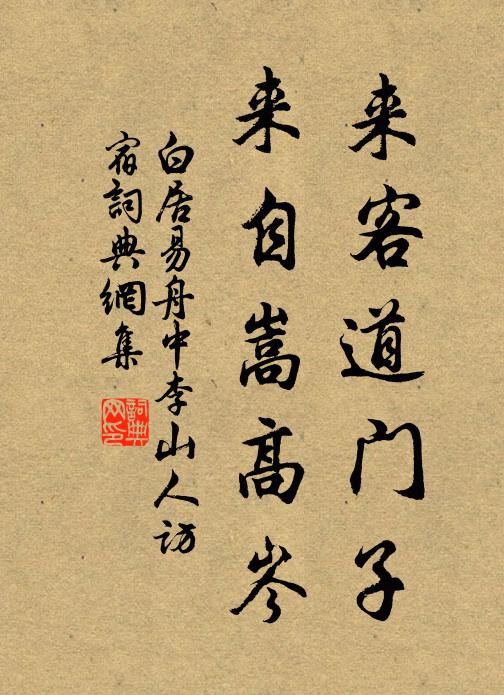 来客道门子
来自嵩高岑
白居易舟中李山人访
宿詞典網集
詞典
网印